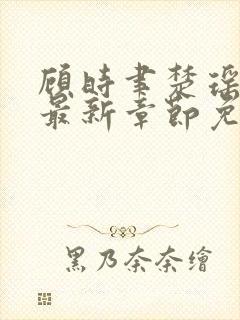 顾时聿楚瑶
最新章节免
黑乃奈奈繪